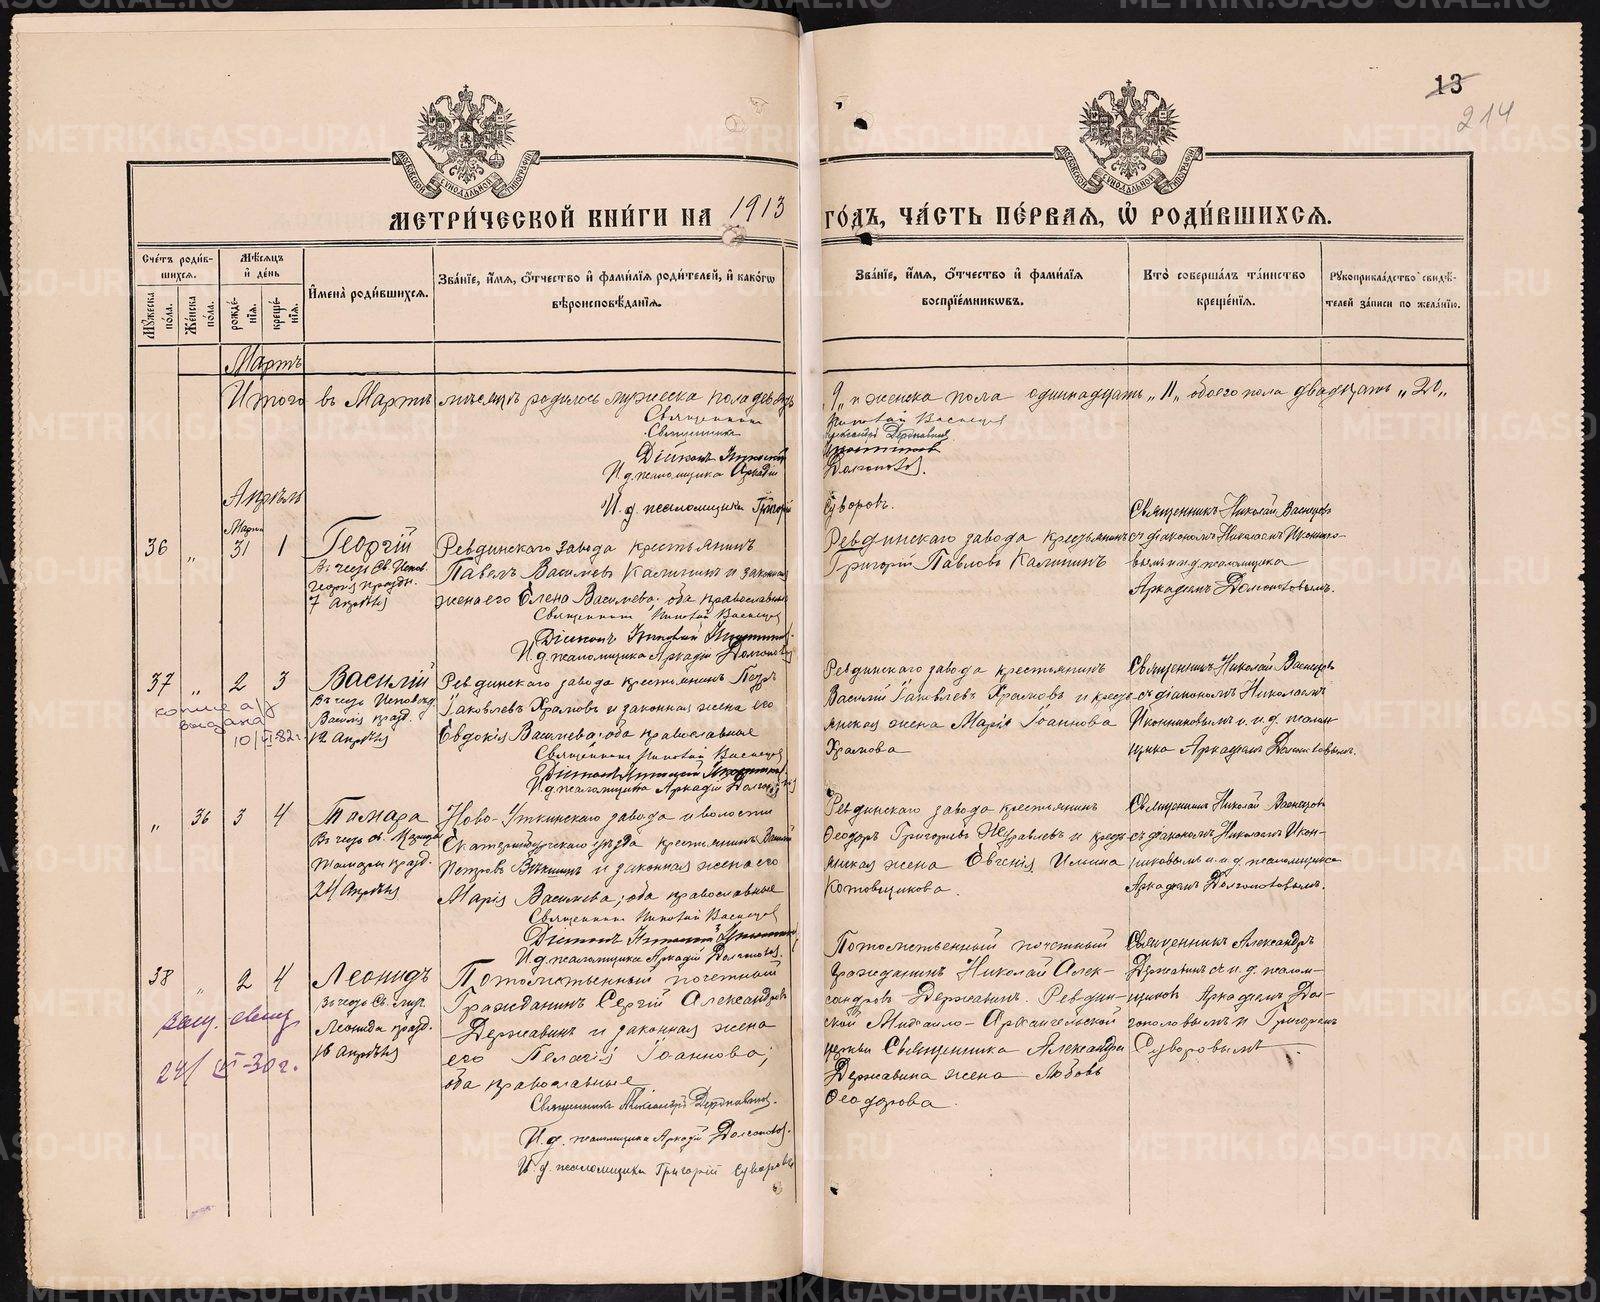 13
214
МОСКОВСКОЙ СѴНОДАЛЬНОЙ ТИПОГРАФІИ
МОСКОВСКОЙ СѴНОДАЛЬНОЙ ТИПОГРАФІИ
МЕТРИ́ЧЕСКОЙ КНИ́ГИ НА 1913 ГО́ДЪ, ЧА́СТЬ ПЕ́РВАЯ, Ѡ҆ РОДИ́ВШИХСѦ.
Сче́тъ роди́вшихсѧ.
Мꙋ́жеска по́ла.
Же́нска по́ла.
Мѣ́сѧцъ и҆ де́нь
рожде́нїѧ.
креще́нїѧ.
И҆мена̀ роди́вшихсѧ.
Зва́нїе, и҆́мѧ, ѻ҆́тчество и҆ фами́лїѧ роди́телей, и҆ како́гѡ вѣроисповѣ́данїѧ.
Зва́нїе, и҆́мѧ, ѻ҆́тчество и҆ фами́лїѧ воспрїе́мникѡвъ.
Кто̀ соверша́лъ та́инство креще́нїѧ.
Рꙋкоприкла́дство свидѣ́телей за́писи по жела́нїю.
Мартъ
Итого въ Мартѣ мѣсяцѣ родилось мужеска пола девять „9„ женска пола одиннадцать „11„ обоего пола двадцать „20„
Священникъ Николай Васнецовъ
Священникъ Александръ Державинъ
Діаконъ Николай
И. д. псаломщика Аркадій Долгополовъ.
И. д. псаломщика Григорій Суворовъ.
Апрѣль
Марта
36 „ 31 1
Георгій
Въ честь Св. Испов.
Георгія праздн.
7 Апрѣля
Ревдинскаго завода крестьянинъ
Павелъ Васильевъ Калининъ и законная
жена его Елена Васильева: оба православные
Священникъ Николай Васнецовъ
Діаконъ Николай
И. д. псаломщика Аркадій Долгополовъ
Ревдинскаго завода крестьянинъ
Григорій Павловъ Калининъ
Священникъ Николай Васнецовъ
съ діакономъ Николаемъ Иконнико-
вымъ и и. д. псаломщика
Аркадіемъ Долгополовымъ.
37 „ 2 3
копия а/з
выдана
10/VI-82г.
Василій
Въ честь Исповѣд.
Василія празд.
12 Апрѣля
Ревдинскаго завода крестьянинъ Петръ
Іаковлевъ Храмовъ и законная жена его
Евдокія Васильева: оба православные
Священникъ Николай Васнецовъ
Діаконъ Николай
И. д. псаломщика Аркадій Долгополовъ
Ревдинскаго завода крестьянинъ
Василій Іаковлевъ Храмовъ и кресть-
янская жена Марія Іоаннова
Храмова
Священникъ Николай Васнецовъ
съ діакономъ Николаемъ
Иконниковымъ и и. д. псалом-
щика Аркадіемъ Долгополовымъ.
„ 36 3 4
Тамара
Въ честь св. Царицы
Тамары празд.
24 Апрѣля
Ново-Уткинскаго завода и волости
Екатеринбургскаго уѣзда крестьянинъ
Петровъ и законная жена его
Марія Васильева; оба православные
Священникъ Николай Васнецовъ
Діаконъ Николай
И. д. псаломщика Аркадій Долгополовъ.
Ревдинскаго завода крестьянинъ
Ѳеодоръ Григорьевъ и кресть-
янская жена Евгенія
Котовщикова.
Священникъ Николай Васнецовъ
съ діакономъ Николаемъ Икон-
никовымъ и и. д. псаломщика
Аркадіемъ Долгополовымъ.
38 „ 2 4
24/ -30 г.
Леонидъ
Въ честь Св. муч.
Леонида празд.
16 Апрѣля
Потомственный почетный
Гражданинъ Сергій Александровъ
Державинъ и законная жена
его Пелагія Іоаннова;
оба православные
Священникъ Александръ Державинъ.
И. д. псаломщика Аркадій Долгополовъ.
И. д. псаломщика Григорій Суворовъ
Потомственный почетный
Гражданинъ Николай Алек-
сандровъ Державинъ. Ревдин-
ской Михаило-Архангельской
церкви Священника Александра
Державина жена Любовь
Ѳеодорова.
Священникъ Александръ
Державинъ съ и. д. псалом-
щиковъ Аркадіемъ Дол-
гополовымъ и Григоріемъ
Суворовымъ
METRIKI.GASO-URAL.RU